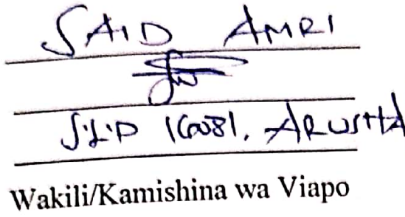 SAID AMRI
S.L.P 16081, ARUSHA
Wakili/Kamishina wa Viapo